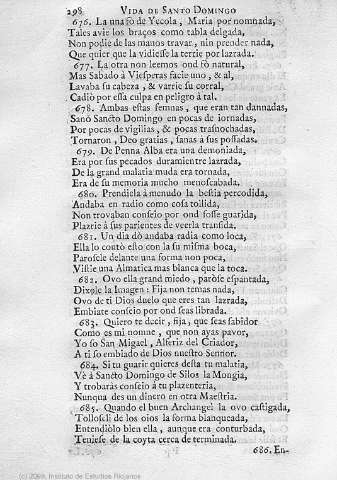 298 VIDA DE SANTO DOMINGO
676. La una fo de Yecola, Maria por nomnada,
Tales avie los braços como tabla delgada,
Non podie de las manos travar, nin prender nada,
Que quier que la vidiesse la terrie por lazrada.
677. La otra non leemos ond fo natural,
Mas Sabado à Viesperas facie uno, & al,
Lavaba su cabeza, & varrie su corral,
Cadiò por essa culpa en peligro à tal.
678. Ambas estas femnas, que eran tan dannadas,
Sanò Sancto Domingo en pocas de iornadas,
Por pocas de vigilias, & pocas trasnochadas,
Tornaron, Deo gratias, sanas à sus possadas.
679. De Penna Alba era una demoniada,
Era por sus pecados duramientre lazrada,
De la grand malatia muda era tornada,
Era de su memoria mucho menoscabada.
680. Prendiela à menudo la bestia percodida,
Andaba en radio como cosa tollida,
Non trovaban conseio por ond fosse guarida,
Plazrie à sus parientes de veerla transida.
681. Un dia dò andaba radia como loca,
Ella lo contò esto con la su misma boca,
Parosele delante una forma non poca,
Vistie una Almatica mas blanca que la toca.
682. Ovo ella grand miedo, paròse espantada,
Dixole la Imagen: Fija non temas nada,
Ovo de ti Dios duelo que eres tan lazrada,
Embiate conseio por ond seas librada.
683. Quiero te decir, fija, que seas sabidor
Como es mi nomne, que non ayas pavor,
Yo so San Migael, Alferiz del Criador,
A ti so embiado de Dios nuestro Sennor.
684. Si tu guarir quieres desta tu malatia,
Vè à Sancto Domingo de Silos la Mongia,
Y trobaràs conseio à tu plazenteria,
Nunqua des un dinero en otra Maestria.
685. Quando el buen Archangel la ovo castigada,
Tollosseli de los oios la forma blanqueada,
Entendiòlo bien ella, aunque era conturbada,
Teniese de la coyta cerca de terminada.
686. En-
(c) 2009, Instituto de Estudios Riojanos